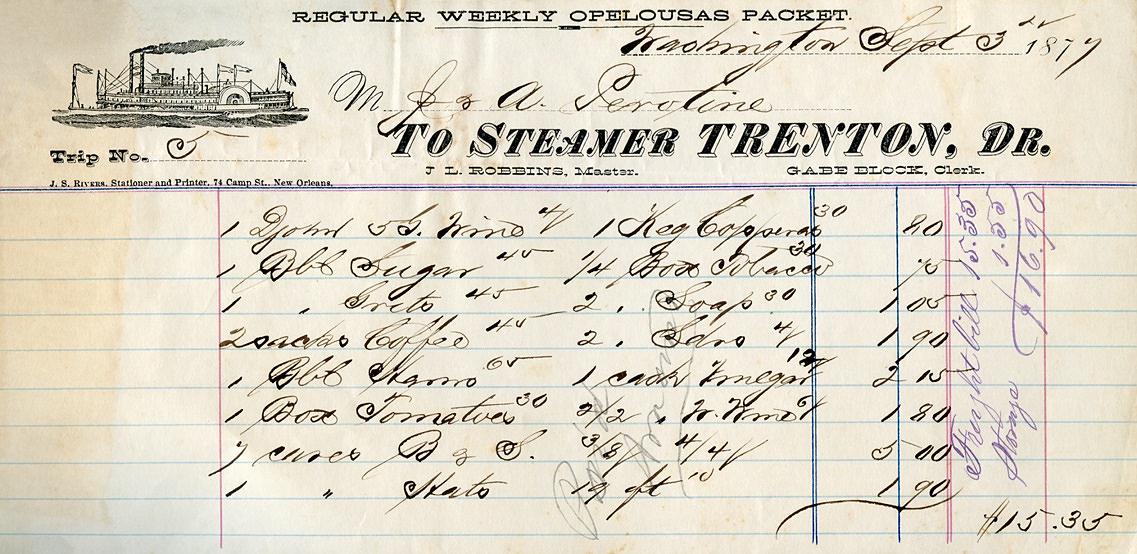 REGULAR WEEKLY OPELOUSAS PACKET.
Washington Sept 3 1877
M J & A. Perotine
Trip No. 5
TO STEAMER TRENTON, DR.
J L. ROBBINS, Master. GABE BLOCK, Clerk.
J. S. RIVERS, Stationer and Printer, 74 Camp St., New Orleans.
1 Djohn 5 G. Wine 1 Keg Copperas 30 80
1 Bbl Sugar 45 1/4 Box Tobacco 30 75
1 " Grits 45 2 " Soap 30 1 05
2 sacks Coffee 45 2 " 1 90
1 Bbl Hams 65 1 cask Vinegar 2 15
1 Box Tomatoes 30 2/2 " W. Wine 1 80
7 cases B & S. 3/8 4/4 5 00
1 " Hats 19 ft 10 1 90
$15.35
Freight bill 15.35
1.55
$16.90